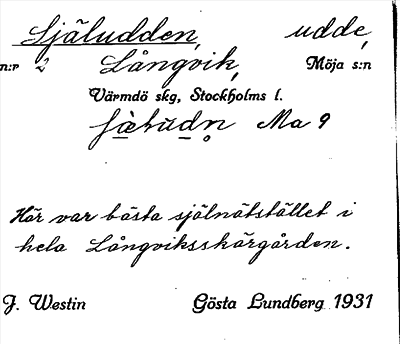 Själudden, udde,
n:r 2 Långvik, Möja s:n
Värmdö skg, Stockholms l.
Ma 9
Här var bästa själnätstället i
hela Långviksskärgården.
J. Westin Gösta Lundberg 1931